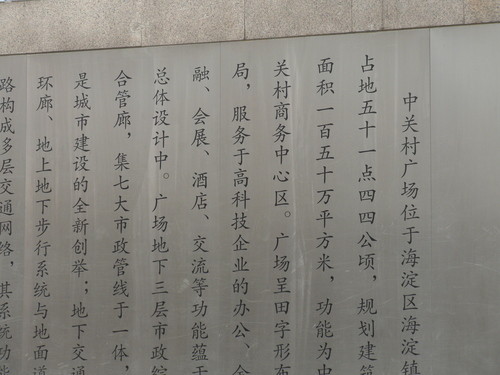 中关村广场位于海淀区海淀镇
占地五十一点四四公顷，规划建筑
面积一百五十万平方米，功能为中
关村商务中心区。广场呈田字形布
局，服务于高科技企业的办公、金
融、会展、酒店、交流等功能蕴于
总体设计中。广场地下三层市政综
合管廊，集七大市政管线于一体，
是城市建设的全新创举；地下交通
环廊、地上地下步行系统与地面道
路构成多层交通网络，其系统功能